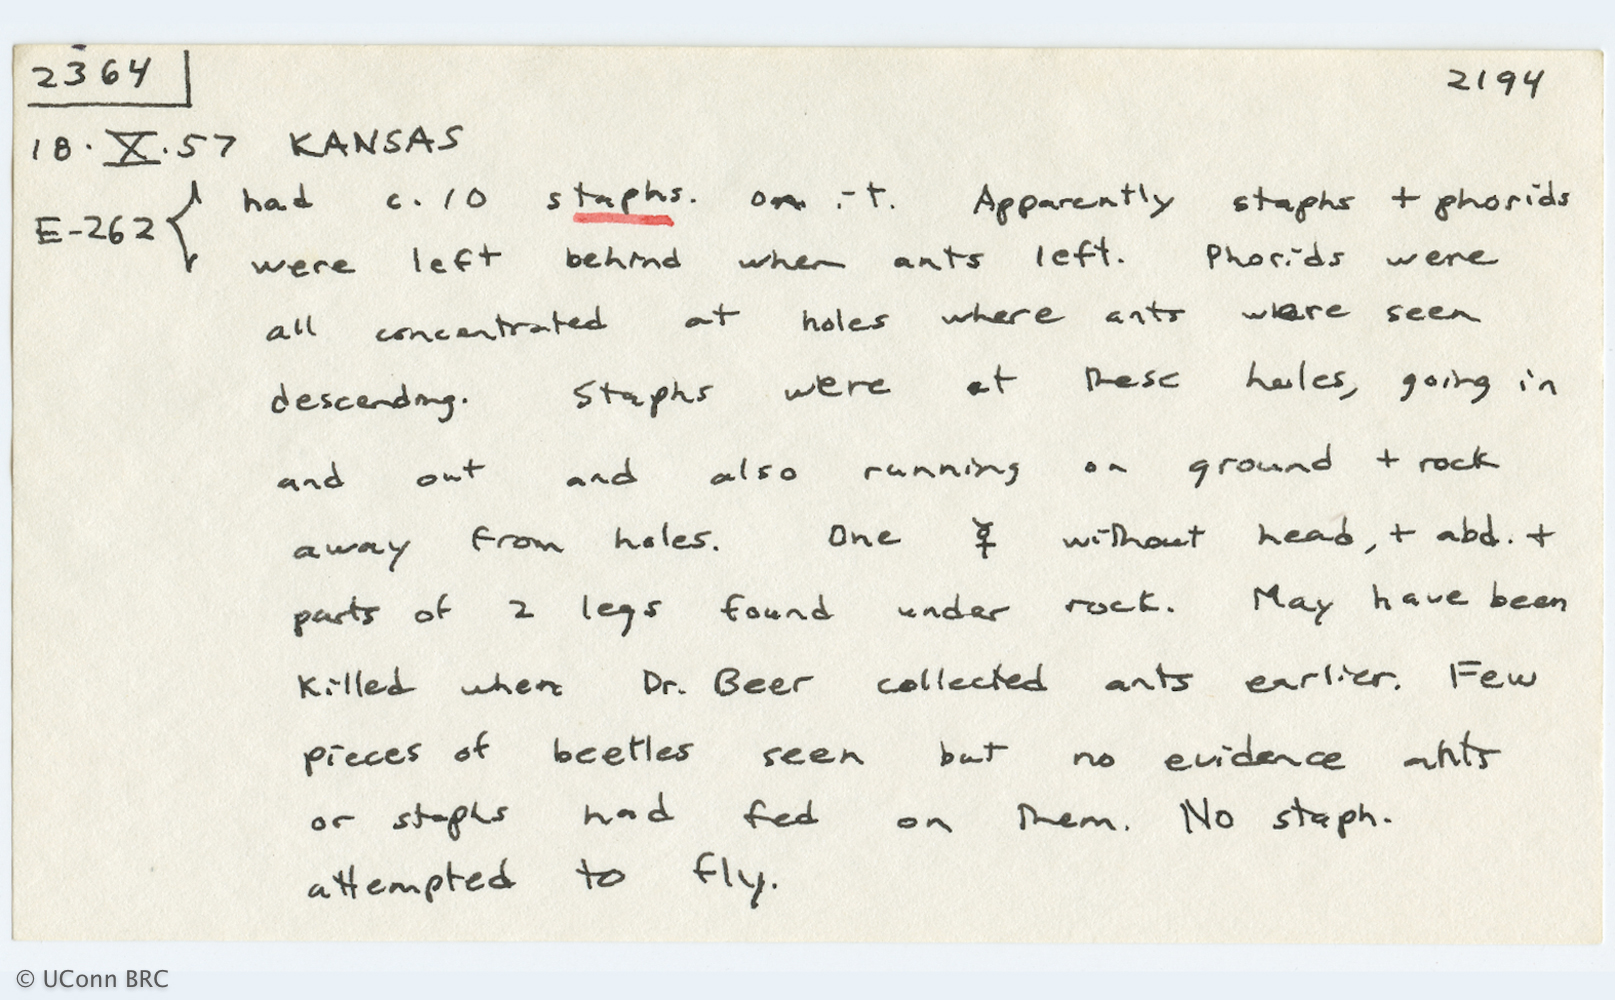 2364
2194
18.X.57 KANSAS
E-262 { had c. 10 staphs. on it. Apparently staphs + phorids
were left behind when ants left. Phorids were
all concentrated at holes where ants were seen
descending. Staphs were at these holes, going in
and out and also running on ground + rock
away from holes. One ☿ without head, + abd. +
parts of 2 legs found under rock. May have been
killed when Dr. Beer collected ants earlier. Few
pieces of beetles seen but no evidence ants
or staphs had fed on them. No staph.
attempted to fly.
© UConn BRC